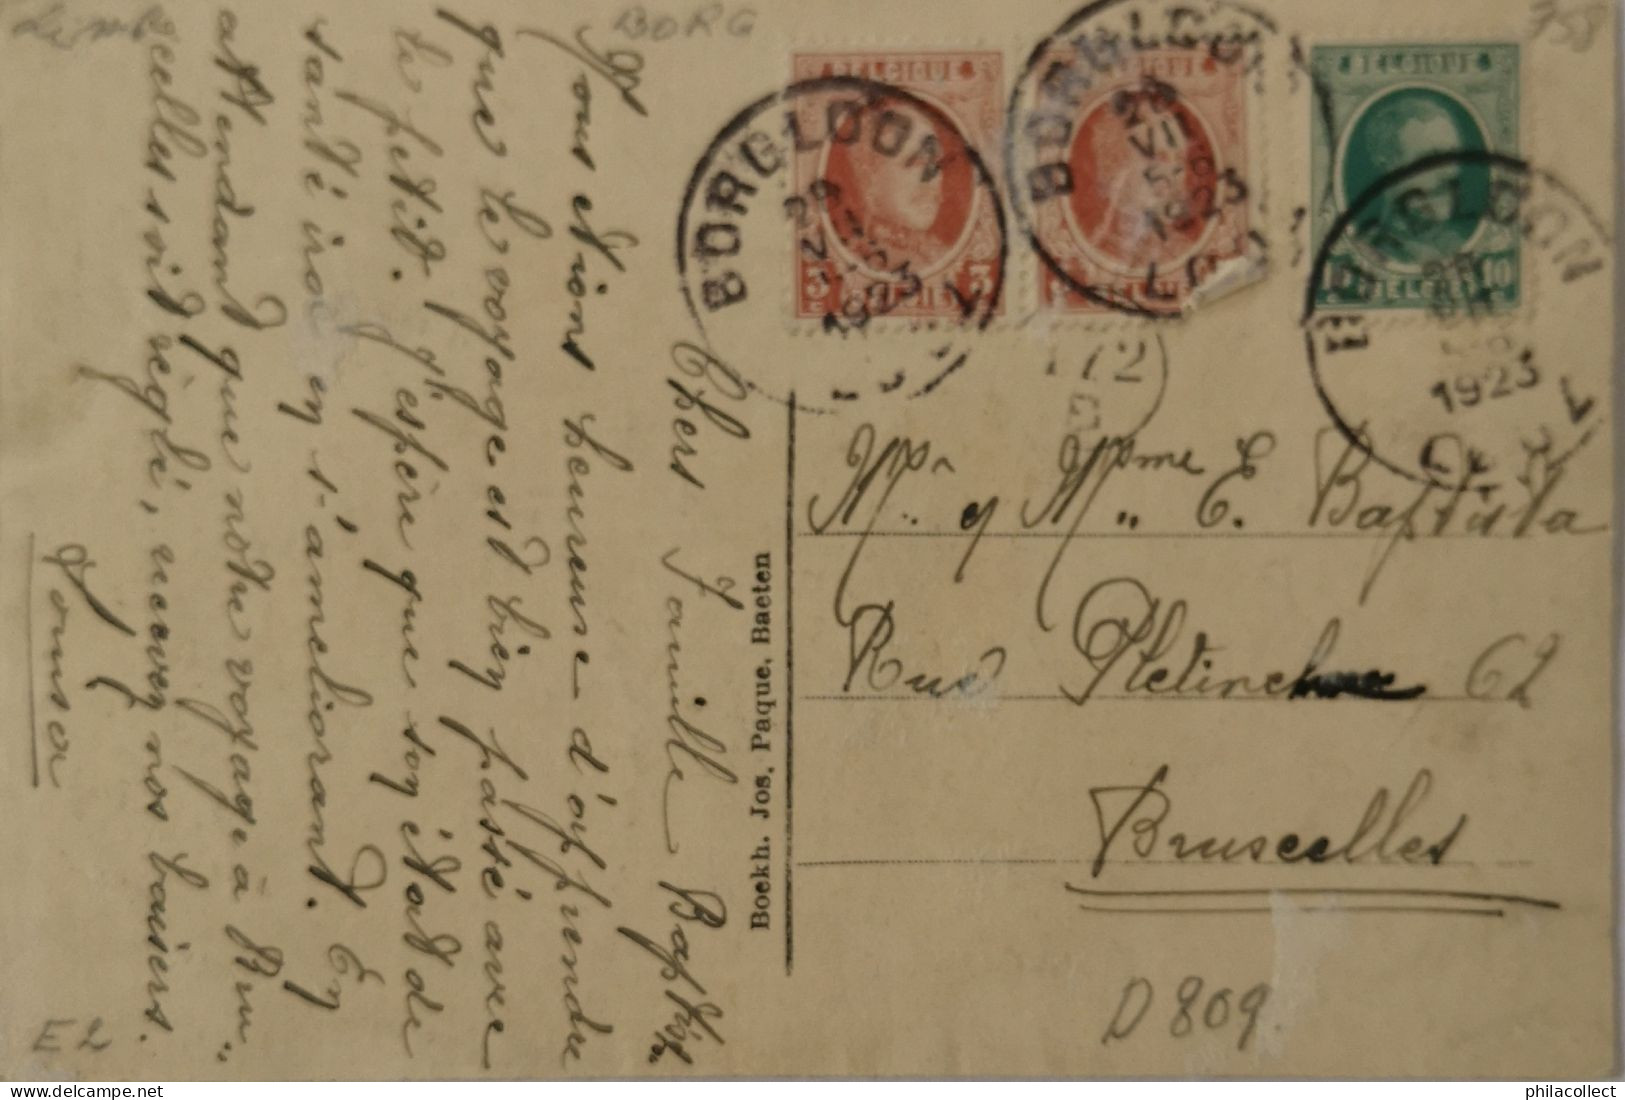 Limb
BORG
758
BELGIQUE
BELGIQUE
BELGIQUE
BORGLOON
29
VII
1923
BORGLOON
29
VII
1923
LOO
BORGLOON
1923
10
BELGIË
172
Chers Famille Baptista
Nous étions heureuse d'apprendre
que le voyage est bien passé avec
le petit. J'espère que son état de
santé ira en s'améliorant. En
attendant que notre voyage à Bru..
xcelles soit réglé, recevez nos baisers.
Mr.. et Mme.. E. Baptista
Rue Pletinckx 62
Bruxcelles
Boekh. Jos. Paque, Baeten
D 809.
E2